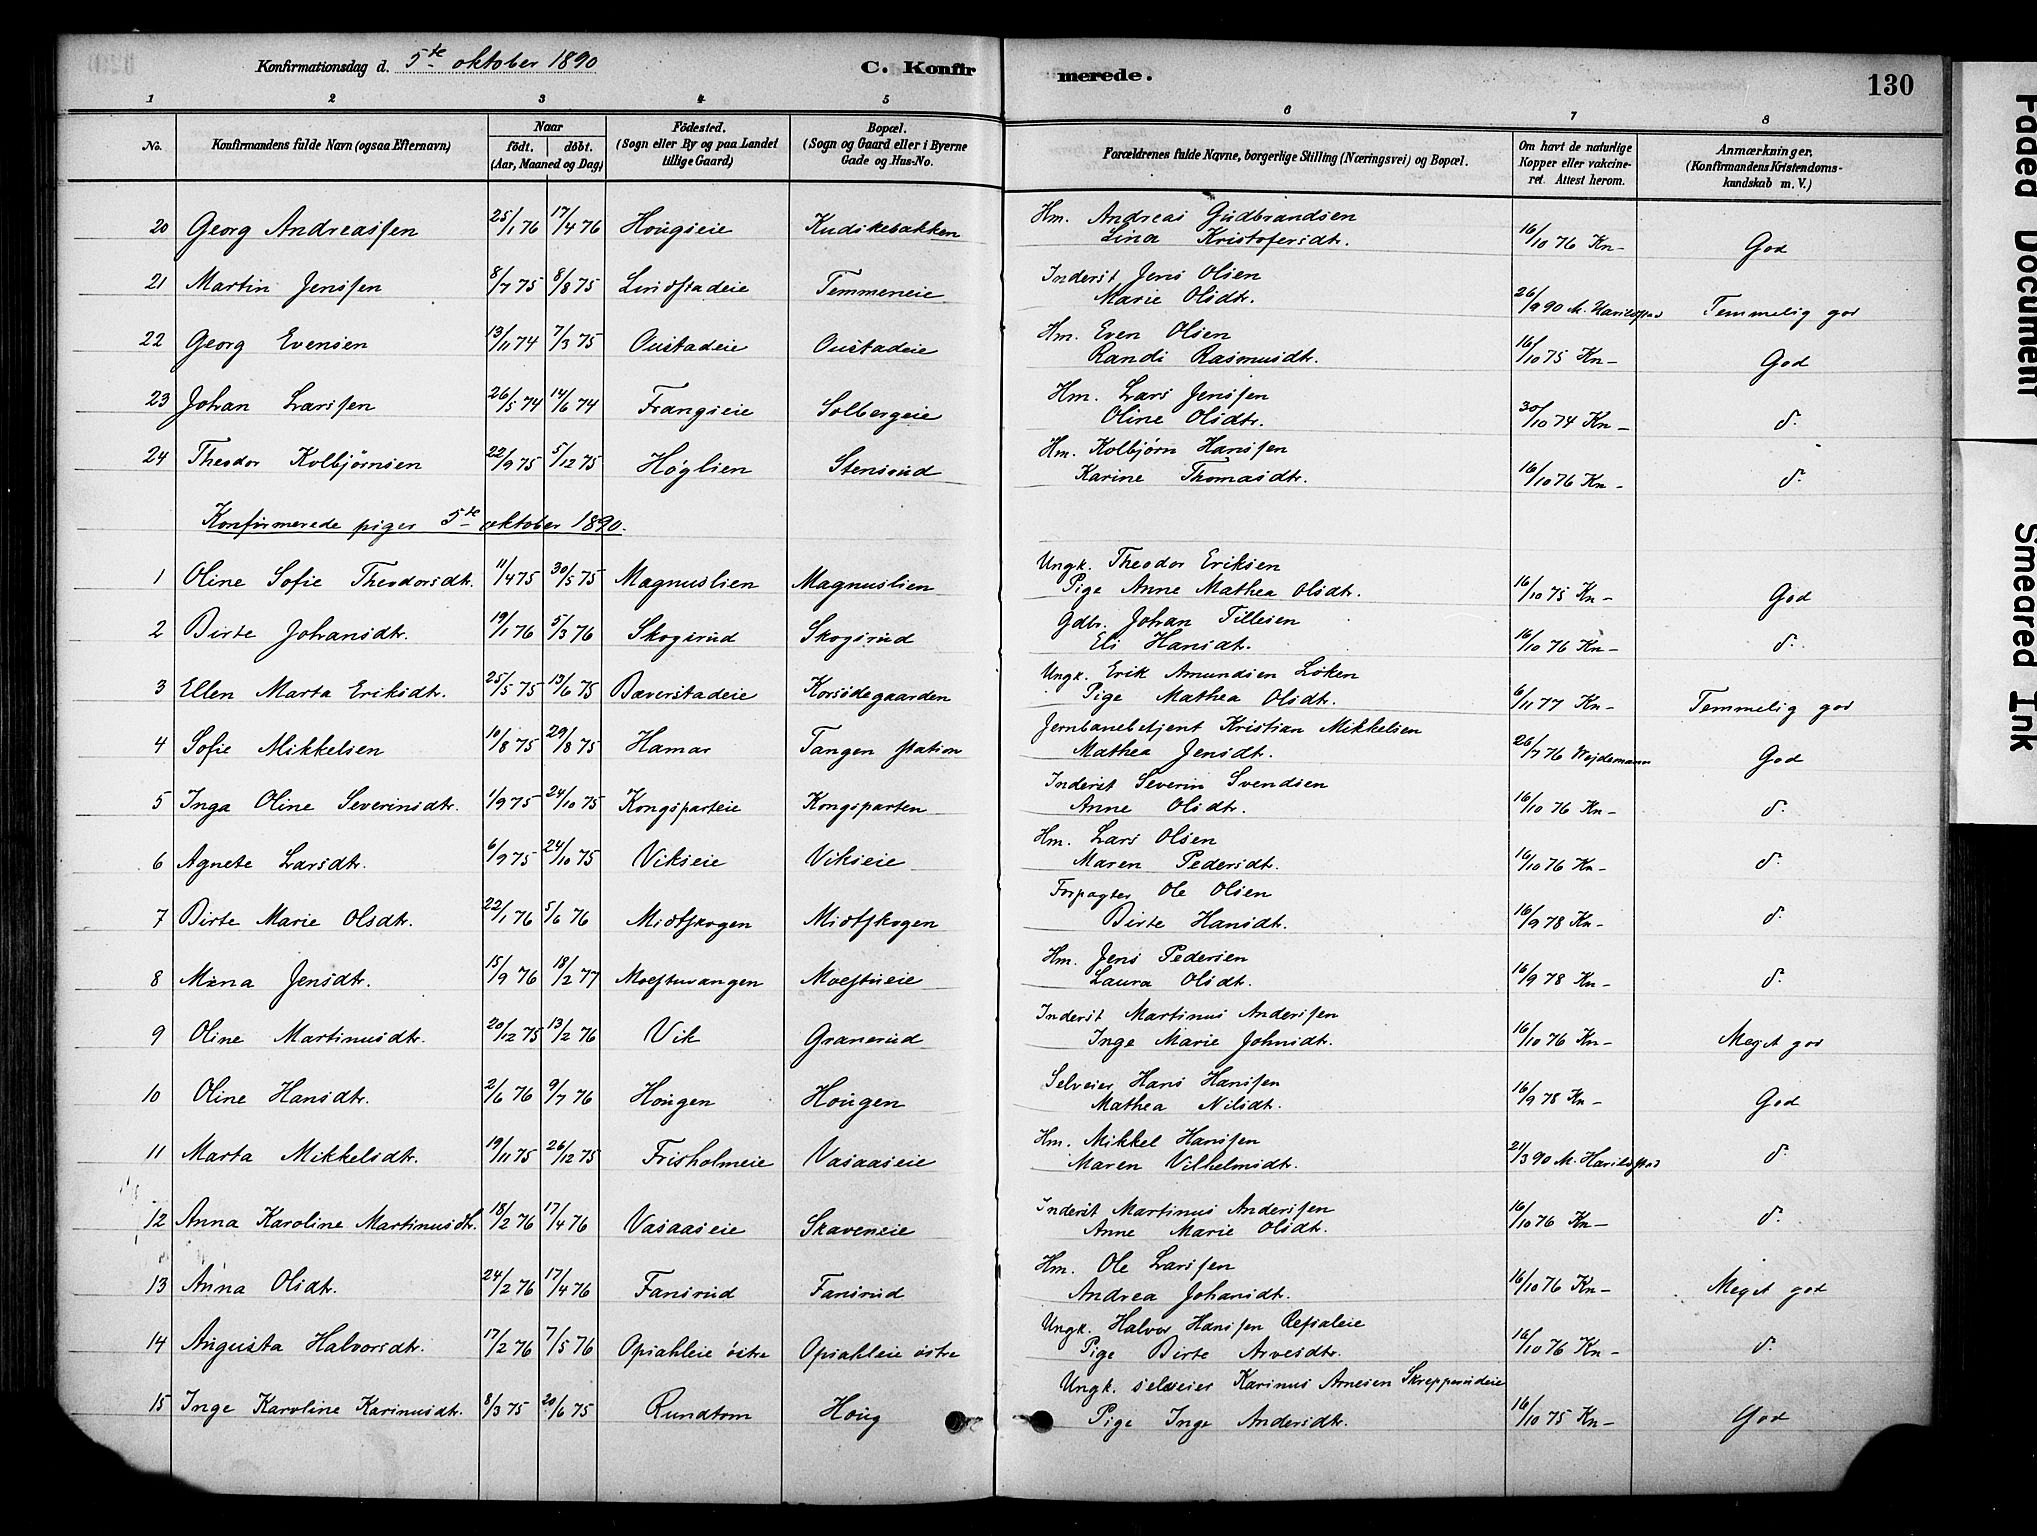 Konfirmationsdag d. 5te oktober 1890
C. Konfirmerede.
130
1 2 3 4 5 6 7 8
No. Konfirmandens fulde Navn (ogsaa Efternavn) Naar födt. döbt. (Aar, Maaned og Dag) Födested. (Sogn eller By og paa Landet tillige Gaard) Bopæl. (Sogn og Gaard eller i Byerne Gade og Hus-No. Forældrenes fulde Navne, borgerlige Stilling (Næringsvei) og Bopæl. Om havt de naturlige Kopper eller vakcineret. Attest herom. Anmærkninger. (Konfirmandens Kristendomskundskab m. V.)
Hm. Andreas Gudbrandsen
20 Georg Andreassen 25/1 76 17/4 76 Hougseie Kudskebakken Lina Kristofersdtr. 16/10 76 Kn- God
Inderst Jens Olsen
21 Martin Jenssen 8/7 75 8/8 75 Lindstadeie Temmeneie Marie Olsdtr. 26/9 90 M. Temmelig god
Hm. Even Olsen
22 Georg Evensen 13/11 74 7/3 75 Oustadeie Oustadeie Randi Rasmusdtr. 16/10 75 Kn- God
Hm. Lars Jenssen
23 Johan Larssen 26/5 74 14/6 74 Frangseie Solbergeie Oline Olsdtr. 30/10 74 Kn- d.
Hm. Kolbjørn Hanssen
24 Theodor Kolbjørnsen 22/9 75 5/12 75 Høglien Stensrud Karine Thomasdtr. 16/10 76 Kn- d.
Konfirmerede piger 5te oktober 1890.
Ungk. Theodor Eriksen
1 Oline Sofie Theodorsdtr. 11/4 75 30/5 75 Magnuslien Magnuslien Pige Anne Mathea Olsdtr. 16/10 75 Kn- God
Gdbr. Johan Tillesen
2 Birte Johansdtr. 19/1 76 5/3 76 Skogsrud Skogsrud Eli Hansdtr. 16/10 76 Kn- d.
Ungk. Erik Amundsen Løken
3 Ellen Marta Eriksdtr. 25/5 75 13/6 75 Bæverstadeie Korsødegaarden Pige Mathea Olsdtr. 6/11 77 Kn- Temmelig god
Jernbanebetjent Kristian Mikkelsen
4 Sofie Mikkelsen 10/8 75 29/8 75 Hamar Tangen station Mathea Jensdtr. 26/7 76 Wejdemann God
Inderst Severin Svendsen
5 Inga Oline Severinsdtr. 1/9 75 24/10 75 Kongsparteie Kongsparten Anne Olsdtr. 16/10 76 Kn- d.
Hm. Lars Olsen
6 Agnete Larsdtr. 6/9 75 24/10 75 Vikseie Vikseie Maren Pedersdtr. 16/10 76 Kn- d.
Forpagter Ole Olsen
7 Birte Marie Olsdtr. 22/1 76 5/6 76 Midtskogen Midtskogen Birte Hansdtr. 16/9 78 Kn- d.
Hm. Jens Pedersen
8 Mina Jensdtr. 15/9 76 18/2 77 Moestuvangen Moestueie Laura Olsdt. 16/9 78 Kn- d.
Inderst Martinus Anderssen
9 Oline Martinusdtr. 20/12 75 13/2 76 Vik Granerud Inge Marie Johnsdtr. 16/10 76 Kn- Meget god
Selveier Hans Hanssen
10 Oline Hansdtr. 2/6 76 9/7 76 Hougen Hougen Mathea Nilsdt. 16/9 78 Kn- God
Hm. Mikkel Hanssen
11 Marta Mikkelsdtr. 19/11 75 26/12 75 Frisholmeie Vasaaseie Maren Vilhelmsdtr. 21/3 90 M. d.
Inderst Martinus Anderssen
12 Anna Karoline Martinusdtr. 18/2 76 17/4 76 Vasaaseie Skaveneie Anne Marie Olsdtr. 16/10 76 Kn- d.
Hm. Ole Larssen
13 Anna Olsdtr. 24/2 76 17/4 76 Fansrud Fansrud Andrea Johansdt. 16/10 76 Kn- Meget god
Ungk. Halvor Hanssen Refsaleie
14 Augusta Halvorsdtr. 17/2 76 7/5 76 Opsahleie østre Opsahleie østre Pige Birte Arvesdtr. 16/10 76 Kn- d.
Ungk. selveier Karinus Arnesen Skreppersdeie
15 Inge Karoline Karinusdtr. 8/3 75 20/6 75 Rundtom Houg Pige Inge Andersdtr. 16/10 75 Kn- God
Faded Document
Smeared Ink